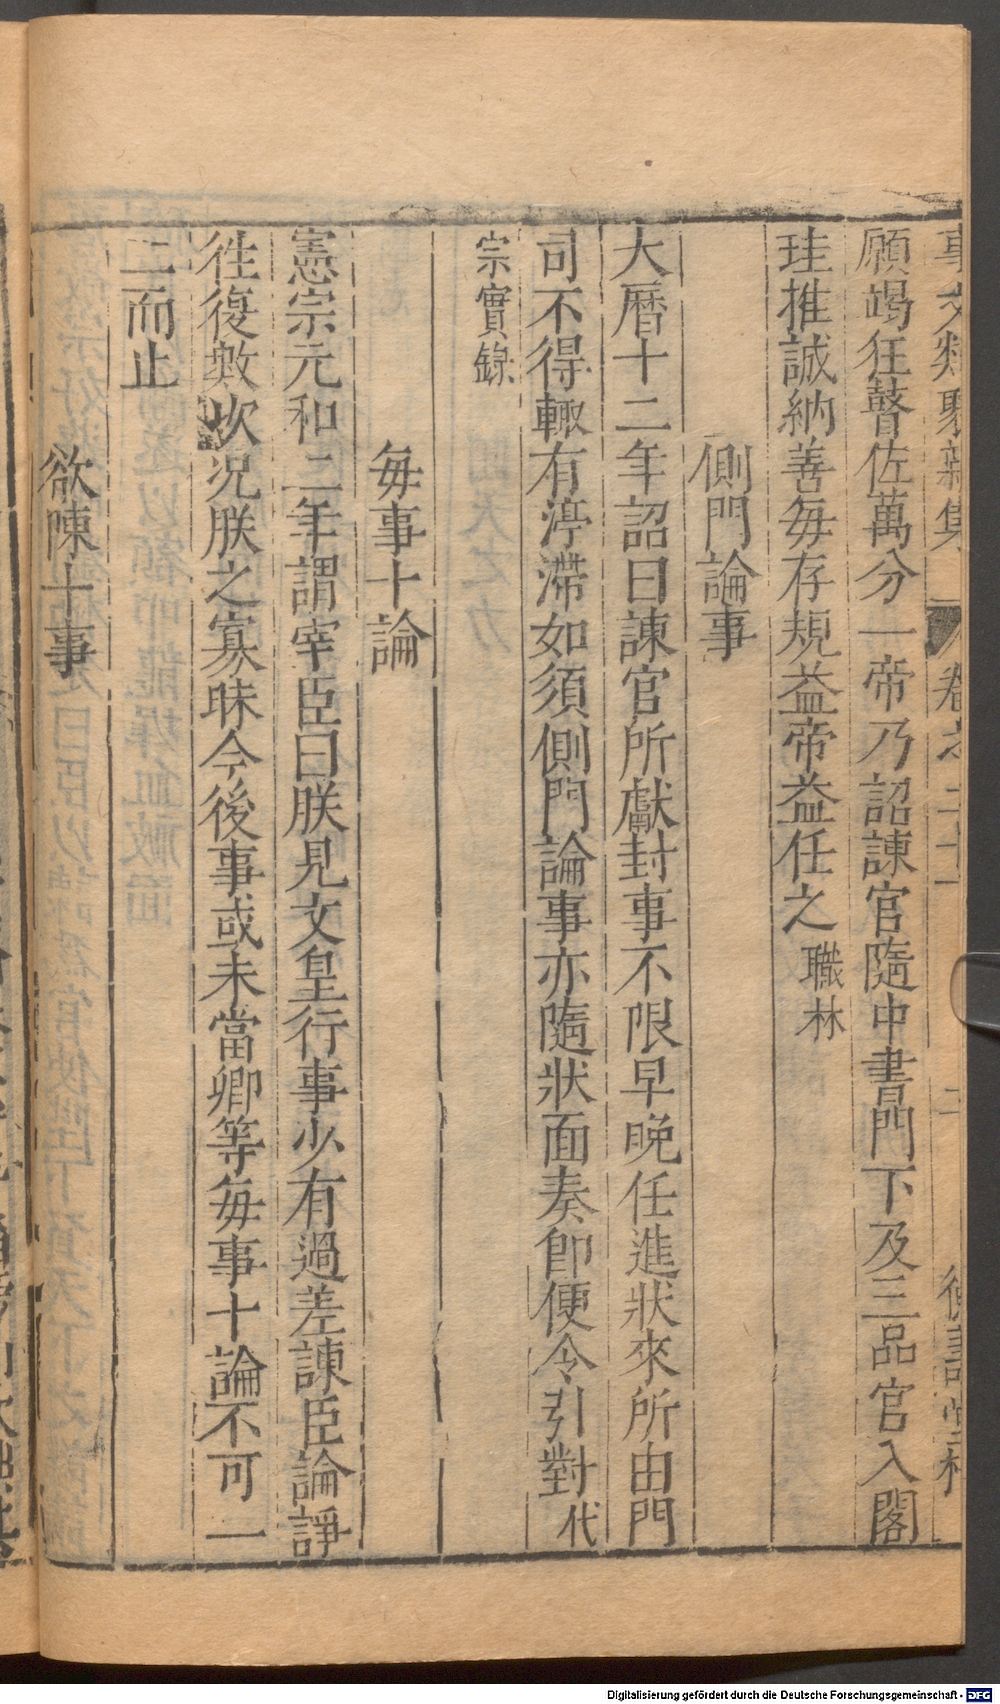 事文類聚新集 卷之二十一 二 德壽堂梓
願竭狂瞽佐萬分一帝乃詔諫官隨中書門下及三品官入閤
珪推誠納善每存規益帝益任之 職林
側門論事
大曆十二年詔曰諫官所獻封事不限早晚任進狀來所由門
司不得輙有渟滯如須側門論事亦隨狀面奏卽便令引對 代
宗實錄
毎事十論
憲宗元和二年謂宰臣曰朕見文皇行事少有過差諫臣論諍
徃復數次况朕之寡昧今後事或未當卿等毎事十論不可一
二而止
欲陳十事
Digitalisierung gefördert durch die Deutsche Forschungsgemeinschaft - DFG